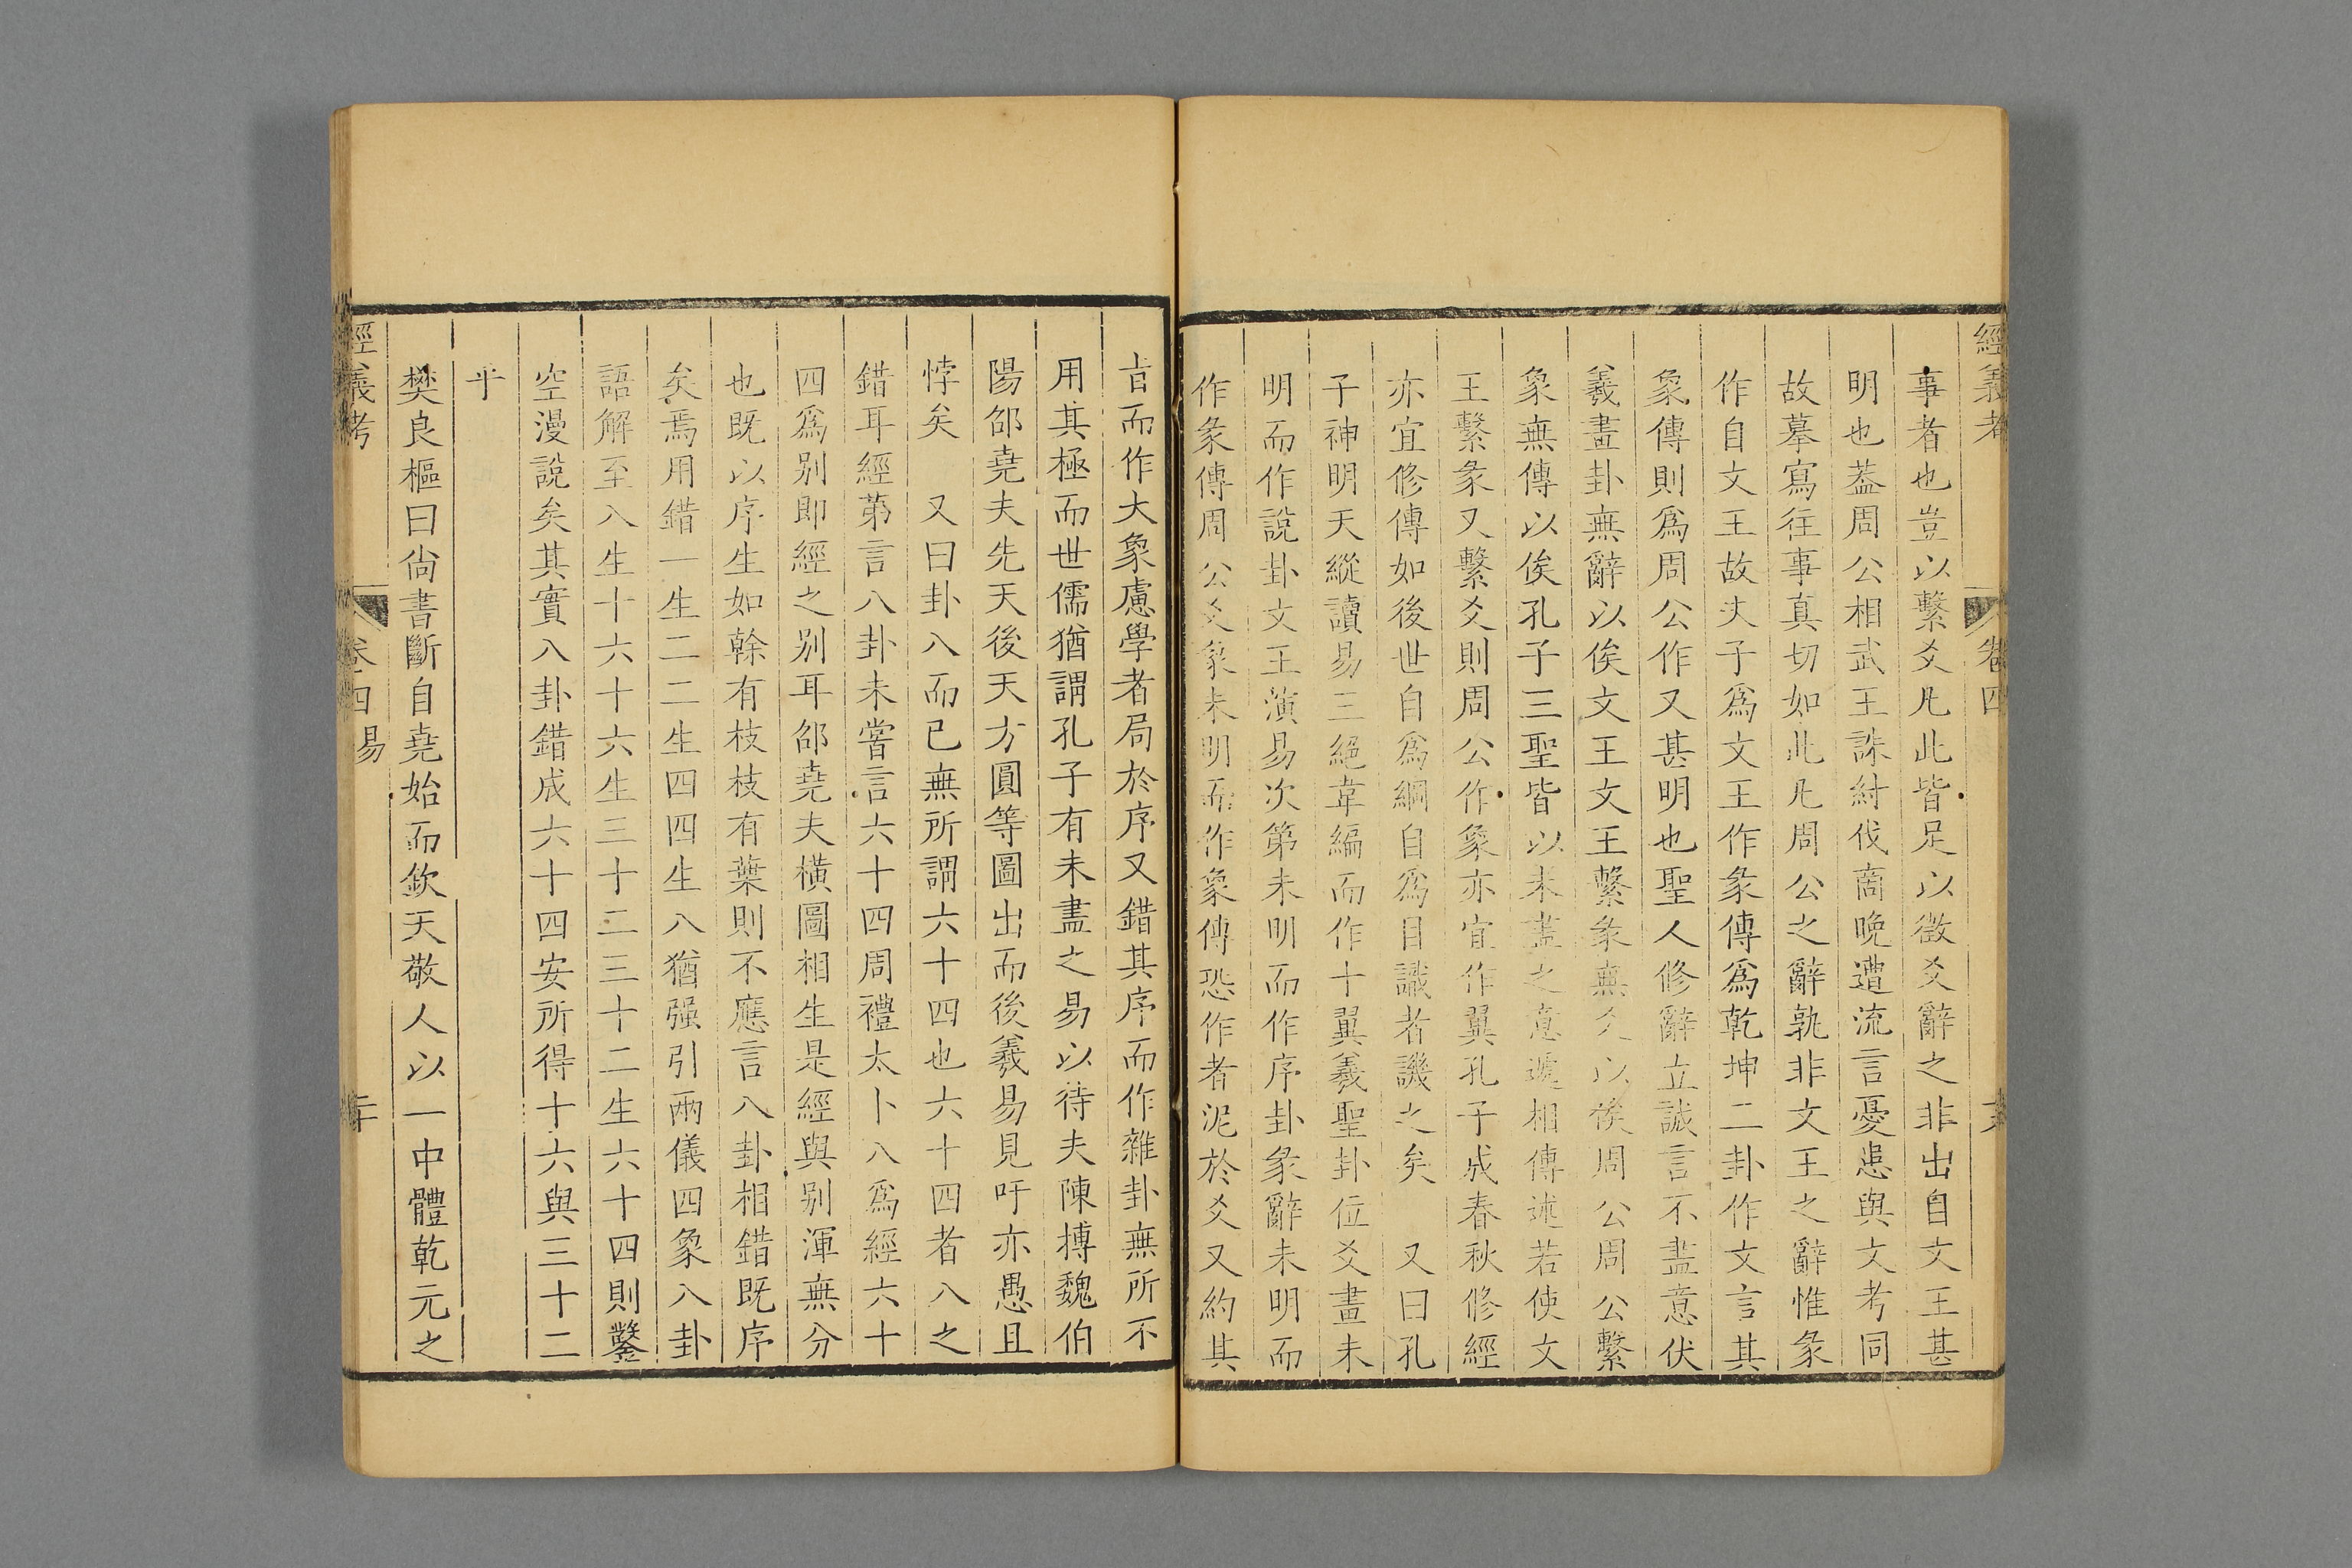 經義考
卷四
事者也豈以繫爻凡此皆足以徵爻辭之非出自文王甚
明也葢周公相武王誅紂伐商晚遭流言憂患與文考同
故摹寫往事真切如此凡周公之辭孰非文王之辭惟彖
作自文王故夫子爲文王作彖傳爲乾坤二卦作文言其
象傳則爲周公作又甚明也聖人修辭立誠言不盡意伏
羲畫卦無辭以俟文王文王繫彖無爻以俟周公周公繫
象無傳以俟孔子三聖皆以未盡之意遞相傳述若使文
王繫彖又繫爻則周公作象亦宜作翼孔子成春秋修經
亦宜修傳如後世自爲綱自爲目識者譏之矣　又曰孔
子神明天縱讀易三絕韋編而作十翼羲聖卦位爻畫未
明而作說卦文王演易次第未明而作序卦彖辭未明而
作彖傳周公爻象未明而作象傳恐作者泥於爻又約其
㫖而作大象慮學者局於序又錯其序而作雜卦無所不
用其極而世儒猶謂孔子有未盡之易以待夫陳摶魏伯
陽邵堯夫先天後天方圓等圖出而後羲易見吁亦愚且
悖矣　又曰卦八而已無所謂六十四也六十四者八之
錯耳經第言八卦未嘗言六十四周禮太卜八爲經六十
四爲别即經之别耳邵堯夫橫圖相生是經與别渾無分
也既以序生如榦有枝枝有葉則不應言八卦相錯既序
矣焉用錯一生二二生四四生八猶强引兩儀四象八卦
語解至八生十六十六生三十二三十二生六十四則鑿
空漫說矣其實八卦錯成六十四安所得十六與三十二
乎
樊良樞曰尙書斷自堯始而欽天敬人以一中體乾元之
經義考
卷四易
二十